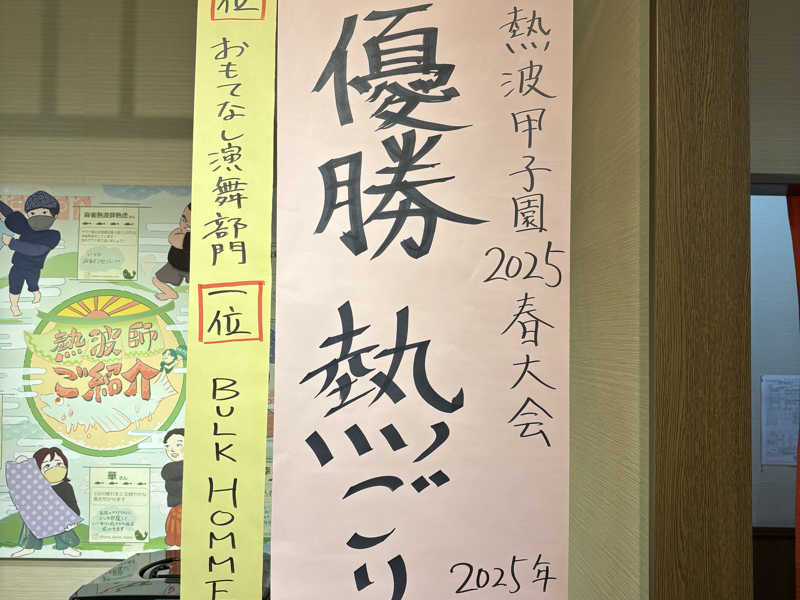 熱波甲子園2025春大会
優勝 熱ごり
2025年
位
おもてなし演舞部門
一位
BULK HOMME
熱波師
ご紹介
華さん